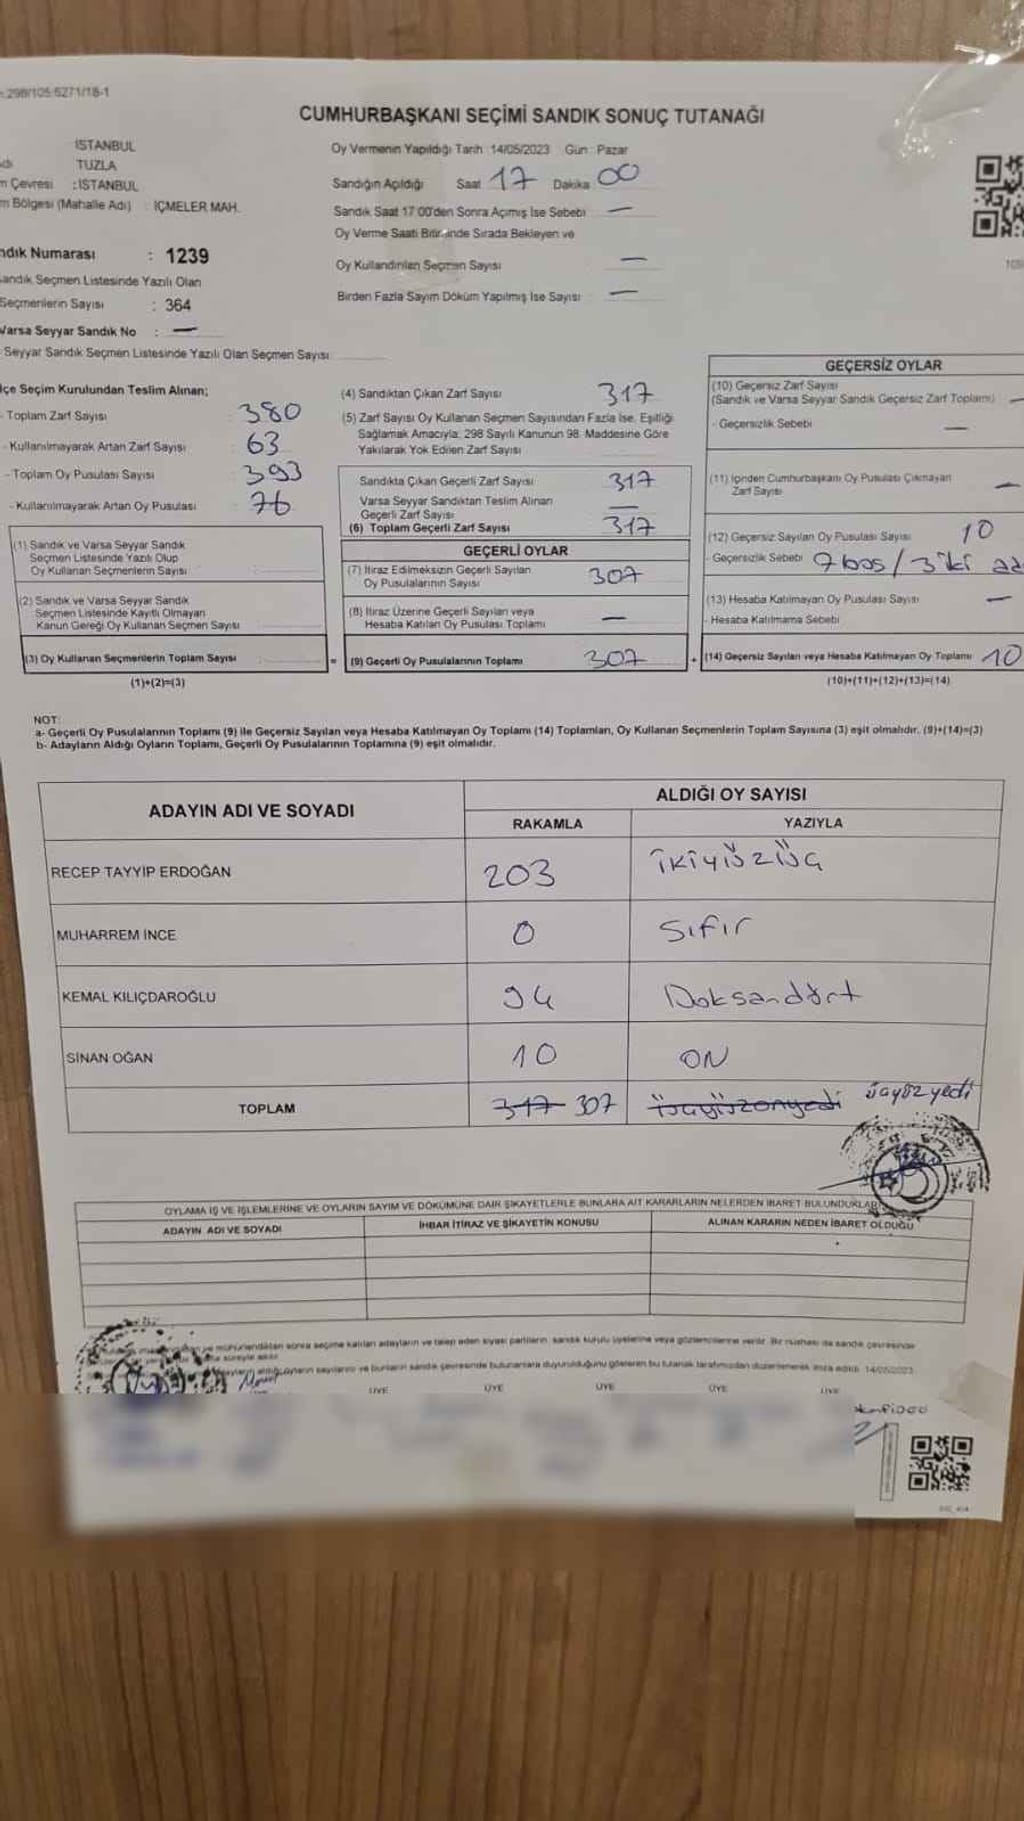 298/105:5271/18-1
CUMHURBAŞKANI SEÇİMİ SANDIK SONUÇ TUTANAĞI
İSTANBUL
TUZLA
Çevresi : İSTANBUL
Bölgesi (Mahalle Adı) : İÇMELER MAH.
Numarası : 1239
Sandık Seçmen Listesinde Yazılı Olan
Seçmenlerin Sayısı : 364
Varsa Seyyar Sandık No : —
Seyyar Sandık Seçmen Listesinde Yazılı Olan Seçmen Sayısı
Oy Vermenin Yapıldığı Tarih :14/05/2023 Gün : Pazar
Sandığın Açıldığı Saat 17 Dakika 00
Sandık Saat 17:00'den Sonra Açılmış İse Sebebi —
Oy Verme Saati Bitiminde Sırada Bekleyen ve
Oy Kullandırılan Seçmen Sayısı —
Birden Fazla Sayım Döküm Yapılmış İse Sayısı —
İlçe Seçim Kurulundan Teslim Alınan;
- Toplam Zarf Sayısı 380
- Kullanılmayarak Artan Zarf Sayısı 63
- Toplam Oy Pusulası Sayısı 393
- Kullanılmayarak Artan Oy Pusulası 76
(1) Sandık ve Varsa Seyyar Sandık
Seçmen Listesinde Yazılı Olup
Oy Kullanan Seçmenlerin Sayısı :
(2) Sandık ve Varsa Seyyar Sandık
Seçmen Listesinde Kayıtlı Olmayan
Kanun Gereği Oy Kullanan Seçmen Sayısı :
(3) Oy Kullanan Seçmenlerin Toplam Sayısı :
(1)+(2)=(3)
(4) Sandıktan Çıkan Zarf Sayısı 317
(5) Zarf Sayısı Oy Kullanan Seçmen Sayısından Fazla İse, Eşitliği
Sağlamak Amacıyla, 298 Sayılı Kanunun 98. Maddesine Göre
Yakılarak Yok Edilen Zarf Sayısı
Sandıkta Çıkan Geçerli Zarf Sayısı 317
Varsa Seyyar Sandıktan Teslim Alınan
Geçerli Zarf Sayısı —
(6) Toplam Geçerli Zarf Sayısı 317
GEÇERLİ OYLAR
(7) İtiraz Edilmeksizin Geçerli Sayılan
Oy Pusulalarının Sayısı 307
(8) İtiraz Üzerine Geçerli Sayılan veya
Hesaba Katılan Oy Pusulası Toplamı —
= (9) Geçerli Oy Pusulalarının Toplamı 307
GEÇERSİZ OYLAR
(10) Geçersiz Zarf Sayısı
(Sandık ve Varsa Seyyar Sandık Geçersiz Zarf Toplamı) —
- Geçersizlik Sebebi —
(11) İçinden Cumhurbaşkanı Oy Pusulası Çıkmayan
Zarf Sayısı —
(12) Geçersiz Sayılan Oy Pusulası Sayısı 10
- Geçersizlik Sebebi 7 boş / 3 iki
(13) Hesaba Katılmayan Oy Pusulası Sayısı —
- Hesaba Katılmama Sebebi
+ (14) Geçersiz Sayılan veya Hesaba Katılmayan Oy Toplamı 10
(10)+(11)+(12)+(13)=(14)
NOT:
a- Geçerli Oy Pusulalarının Toplamı (9) ile Geçersiz Sayılan veya Hesaba Katılmayan Oy Toplamı (14) Toplamları, Oy Kullanan Seçmenlerin Toplam Sayısına (3) eşit olmalıdır. (9)+(14)=(3)
b- Adayların Aldığı Oyların Toplamı, Geçerli Oy Pusulalarının Toplamına (9) eşit olmalıdır.
ADAYIN ADI VE SOYADI
ALDIĞI OY SAYISI
RAKAMLA YAZIYLA
RECEP TAYYİP ERDOĞAN 203 İKİYÜZÜÇ
MUHARREM İNCE 0 Sıfır
KEMAL KILIÇDAROĞLU 94 Doksandört
SİNAN OĞAN 10 ON
TOPLAM 317 307 üçyüzonyedi üçyüzyedi
OYLAMA İŞ VE İŞLEMLERİNE VE OYLARIN SAYIM VE DÖKÜMÜNE DAİR ŞİKAYETLERLE BUNLARA AİT KARARLARIN NELERDEN İBARET BULUNDUKLARI
ADAYIN ADI VE SOYADI İHBAR İTİRAZ VE ŞİKAYETİN KONUSU ALINAN KARARIN NEDEN İBARET OLDUĞU
mühürlendikten sonra seçime katılan adayların ve talep eden siyasi partilerin sandık kurulu üyelerine veya gözlemcilerine verilir. Bir nüshası da sandık çevresinde
süreyle asılır.
aldığı oyların sayılarını ve bunların sandık çevresinde bulunanlara duyurulduğunu gösteren bu tutanak tarafımızdan düzenlenerek imza edildi. 14/05/2023
ÜYE ÜYE ÜYE ÜYE ÜYE